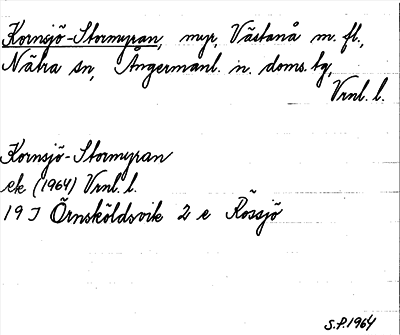 Kornsjö-Stormyran, myr, Västanå m. fl.,
Nätra sn, Ångermanl. n. doms. tg,
Vrnl. l.
Kornsjö-Stormyran
ek (1964) Vrnl. l.
19 J Örnsköldsvik 2 e Rössjö
S.P. 1964